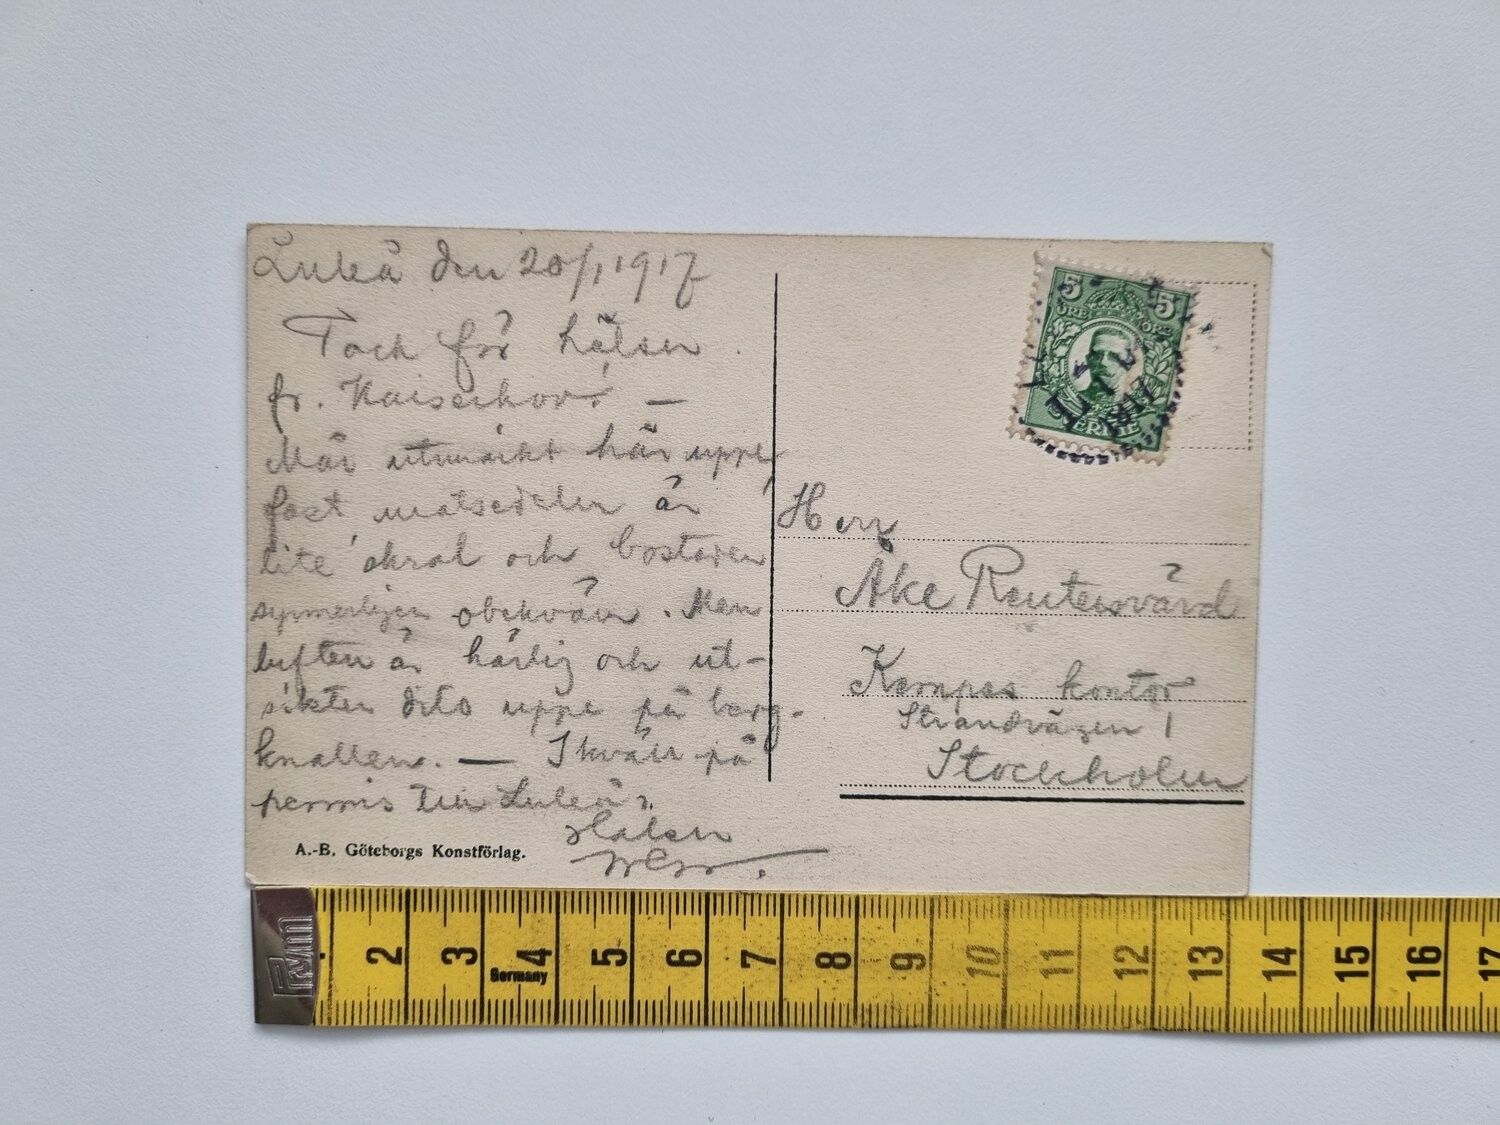 Luleå den 20/1 1917
Tack för hälsn
fr. Kaiserhov
Mår utmärkt här uppe,
fast matsedeln är
lite skral och bostaden
synnerligen obekväm. Men
luften är härlig och ut-
sikten dito uppe på berg-
knallen. — I kväll på
permis till Luleå.
Hälsn
A.-B. Göteborgs Konstförlag.
5 5
ÖRE ÖRE
SVERIGE
Herr
Åke Reuterswärd
Kempes kontor
Strandvägen 1
Stockholm
Prym
Germany
2 3 4 5 6 7 8 9 10 11 12 13 14 15 16 17